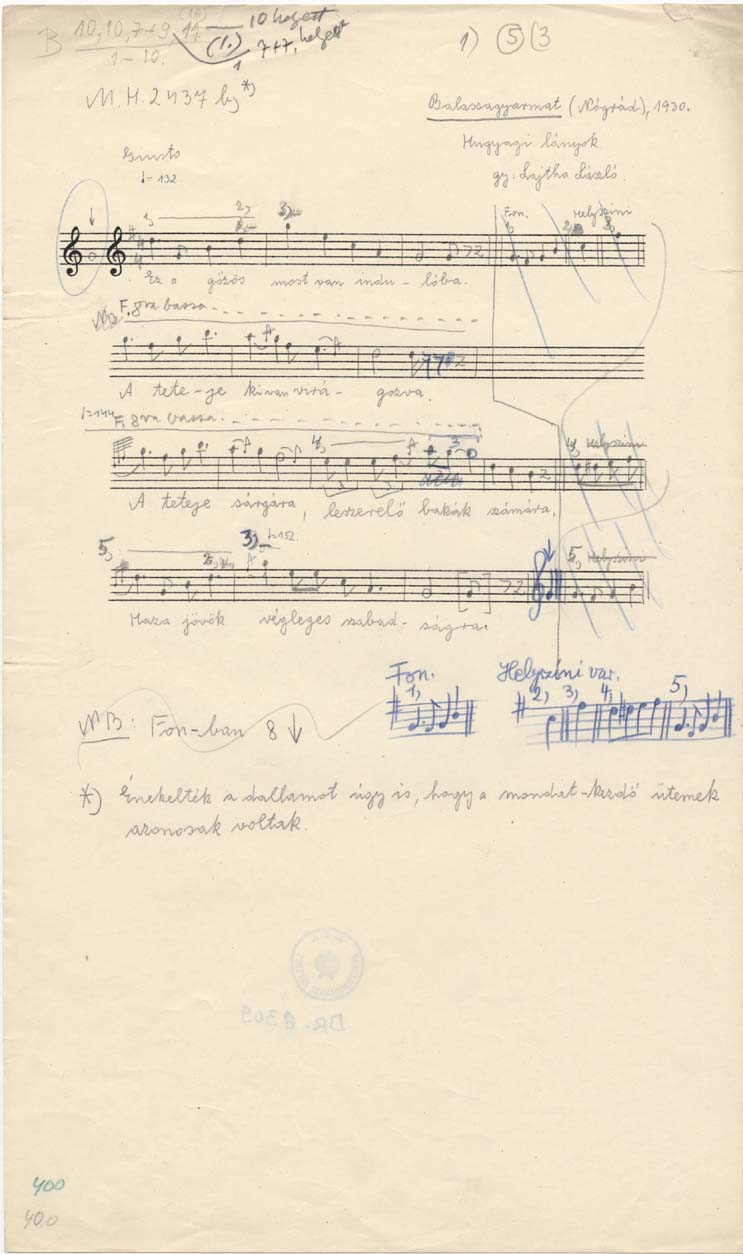 B 10, 10, 7+9, 11 10 helyett
(1.) 7+7, helyett
1 – 10. 1
1) 5 (3
M. H. 2437 b) *)
Balassagyarmat (Nógrád), 1930.
Hugyagi lányok
gy: Lajtha László.
Giusto
♩= 132
1, 2, 3, Fon. 1, Helyszíni 2, 3,
Ez a gőzös most van indu – lóba.
NB F. 8va bassa
A tete-je kivan virá – gozva.
♩=144 F. 8va bassa
4, 3 4, Helyszíni
3 3
A teteje sárgára, leszerelő bakák számára,
5, 2, 3, ♩=152. 5, Helyszíni
Haza jövök végleges szabad – ságra.
Fon. Helyszíni var.
1, 2, 3, 4, 5,
NB: Fon-ban 8 ↓
*) Énekelték a dallamot úgy is, hogy a mondat-kezdő ütemek
azonosak voltak.
400
400